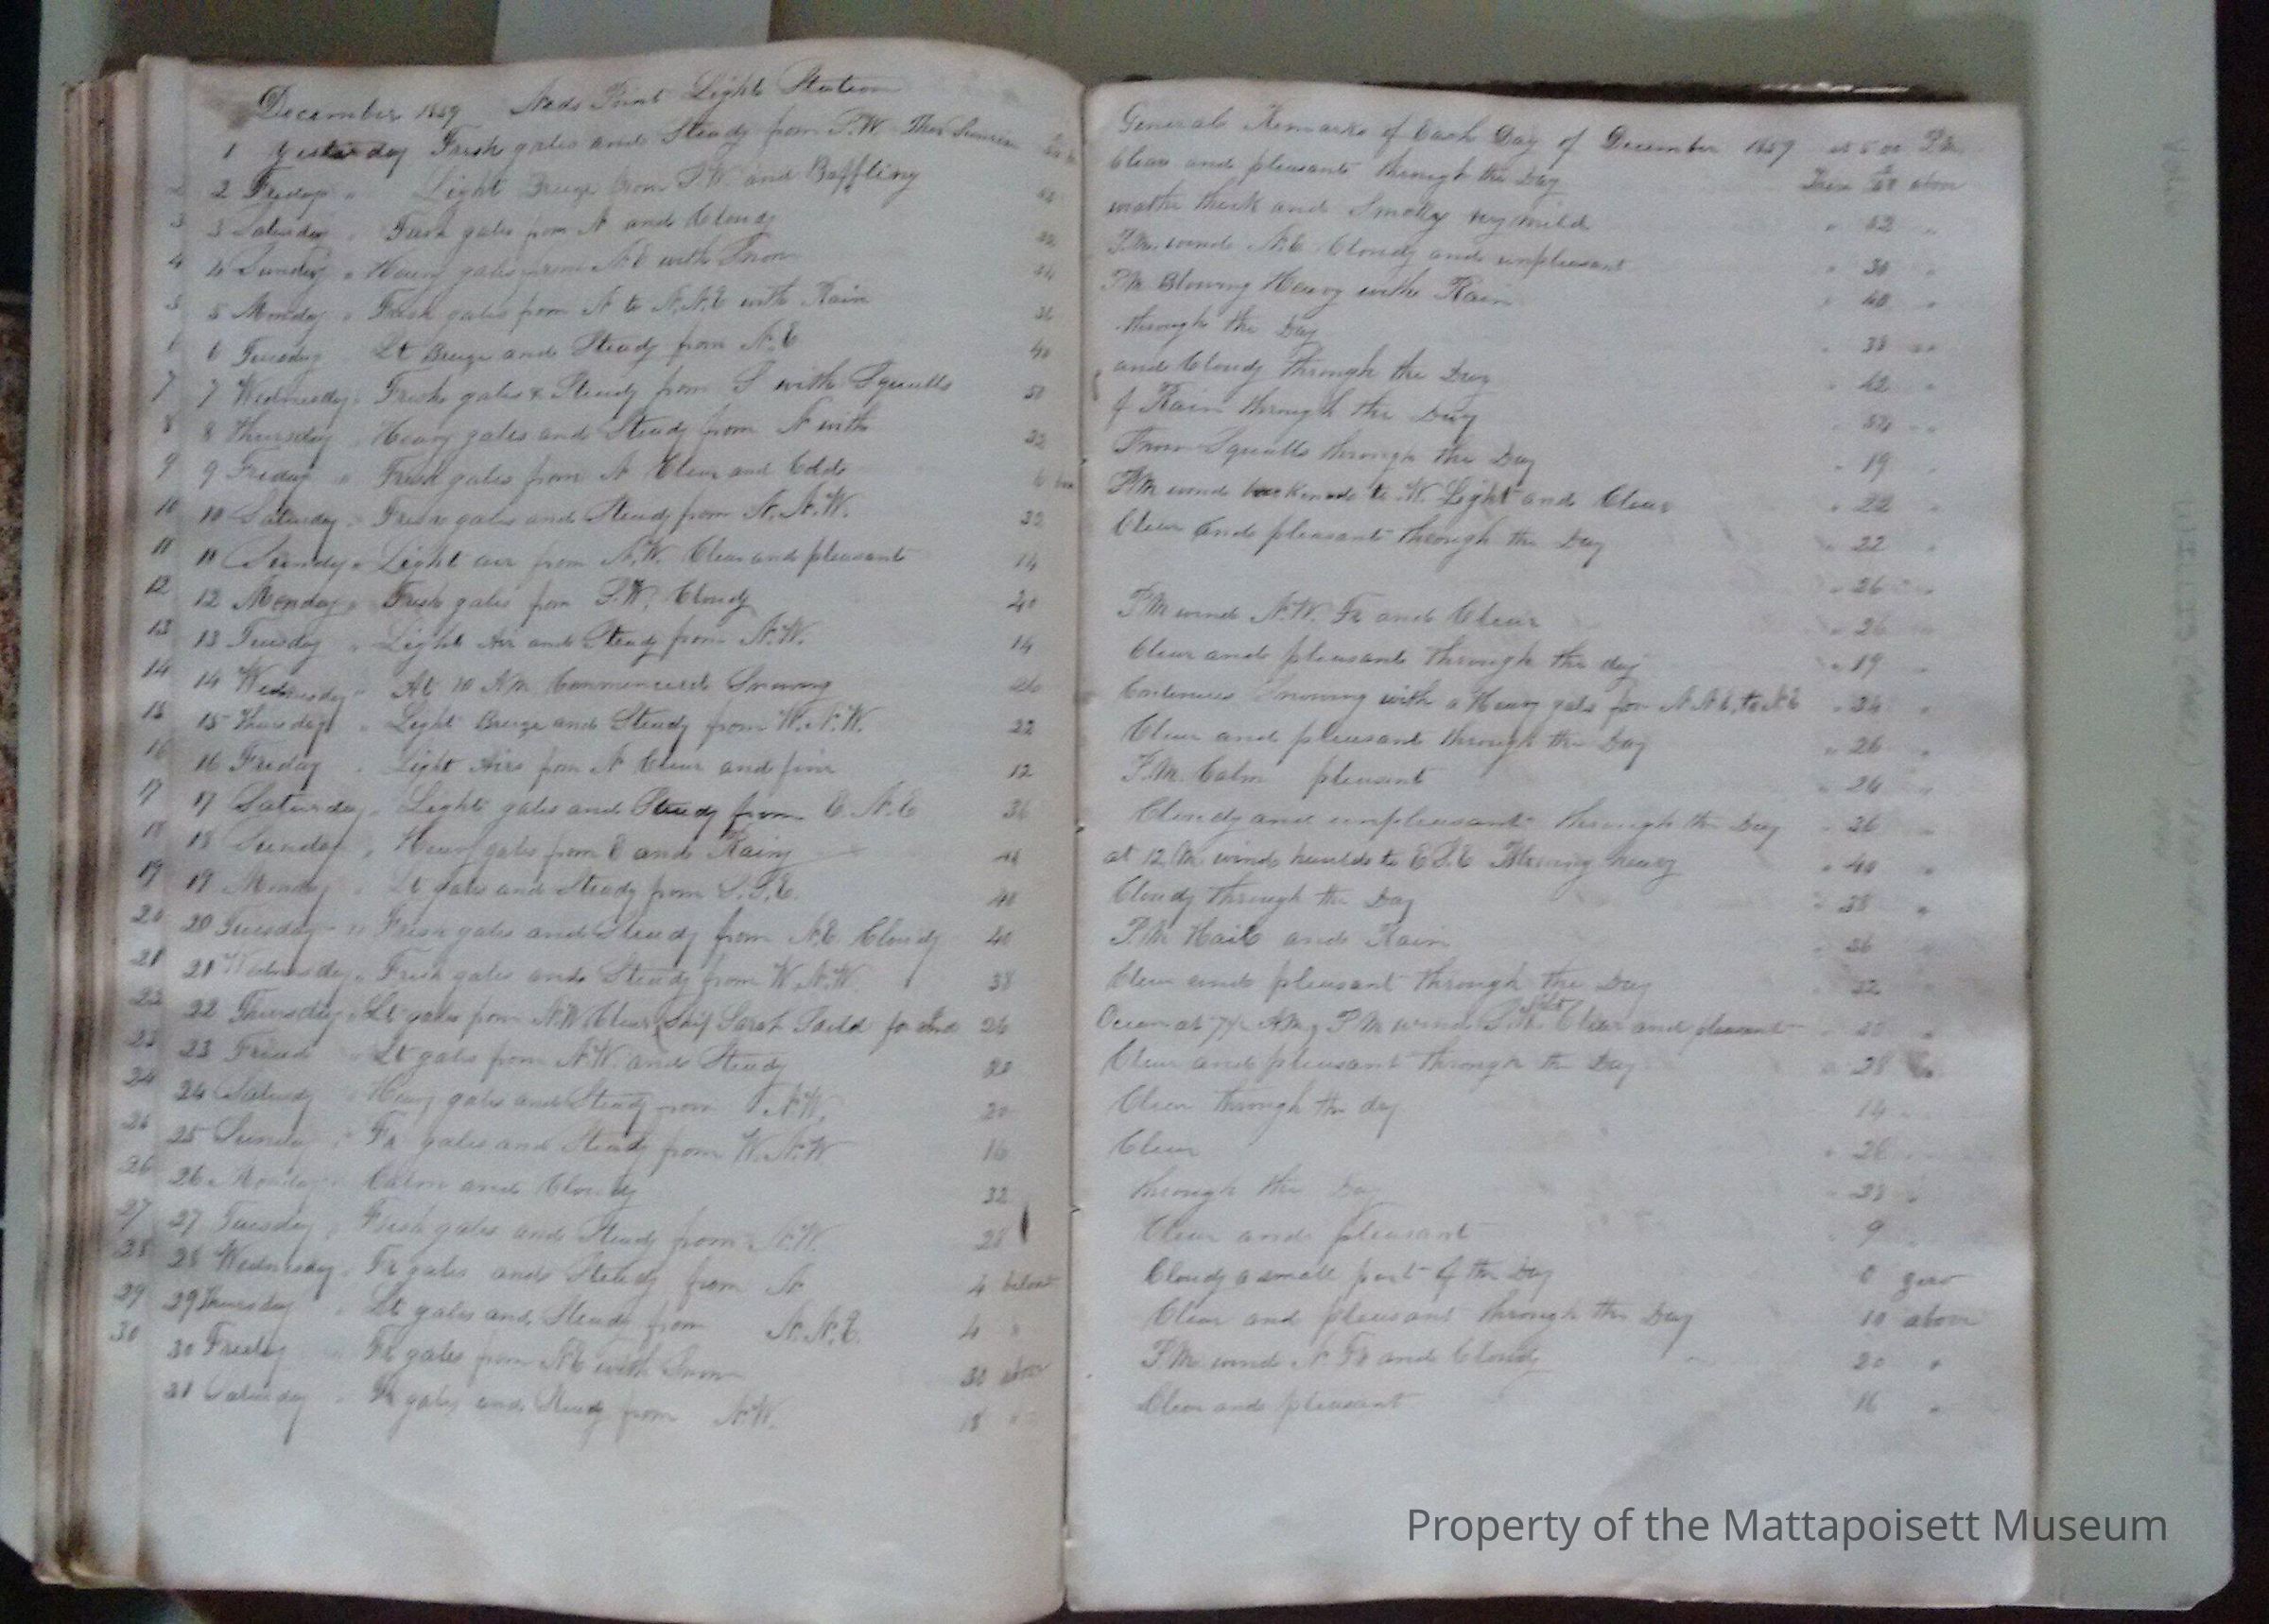 December 1859 Neds Point Light Station
1 yesterday Fresh gales and Steady from S.W. Ther Sunrise
2 2 Friday " Light Breeze from S.W. and Baffling
3 3 Saturday " Fresh gales from N and Cloudy
4 4 Sunday " Heavy gales from N.E with Snow
5 5 Monday " Fresh gales from N to N.N.E with Rain 36
6 6 Tuesday Lt Breeze and Steady from N.E 40
7 7 Wednesday " Fresh gales & Steady from S with Squalls 50
8 8 Thursday " Heavy gales and Steady from N with 32
9 9 Friday " Fresh gales from N Clear and Cold
10 10 Saturday " Fresh gales and Steady from N.N.W.
11 11 Sunday " Light air from N.W. Clear and pleasant 14
12 12 Monday " Fresh gales from S.W. Cloudy 40
13 13 Tuesday " Light Air and Steady from N.W. 14
14 14 Wednesday " At 10 AM Commenced Snowing
15 15 Thursday " Light Breeze and Steady from W.N.W. 22
16 16 Friday " Light Airs from N Clear and fine 12
17 17 Saturday " Light gales and Steady from E.N.E 36
18 18 Sunday " Heavy gales from E and Rainy
19 19 Monday " Lt gales and Steady from S.S.E.
20 20 Tuesday " Fresh gales and Steady from N.E. Cloudy 40
21 21 Wednesday " Fresh gales and Steady from W.N.W. 38
22 22 Thursday " Lt gales from N.W. Clear (Ship Sarah for Ind 26
23 23 Friday " Lt gales from N.W. and Steady 20
24 24 Saturday " Heavy gales and Steady from N.W. 20
25 Sunday " Fr gales and Steady from W.N.W 16
26 26 Monday " Calm and Cloudy 32
27 27 Tuesday " Fresh gales and Steady from N.W. 28
28 28 Wednesday " Fr gales and Steady from N 4 below
29 29 Thursday " Lt gales and Steady from N.N.E. 4 "
30 30 Friday Fr gales from N.E with Snow 30 above
31 Saturday " Fr gales and Steady from N.W. 18
General Remarks of Each Day of December 1859 at P.M.
Clear and pleasant through the Day Ther above
weather thick and Smoky very mild " 52 "
P.M. wind N.E. Cloudy and unpleasant " 30 "
P.M. Blowing Heavy withe Rain " 40 "
through the Day " 38
and Cloudy Through the Day " 42 "
of Rain through the Day "
Snow Squalls through the Day " 19 "
P.M. wind to W. Light and Clear " 22 "
Clear and pleasant through the Day " 22 "
" 26 "
P.M wind N.W. Fr and Clear " 26 "
Clear and pleasant through the day " 19 "
Continues Snowing with a Heavy gale from N.N.E. to N.E " 34 "
Clear and pleasant through the Day " 26 "
P.M. Calm pleasant " 26 "
Cloudy and unpleasant through the Day " 36 "
at 12 M wind hauld to E.S.E Blowing heavy " 40 "
Cloudy through the Day " 38 "
P.M. Hail and Rain " 36 "
Clear and pleasant through the Day " 32 "
Ocean at A.M.) P.M wind Clear and pleasant
Clear and pleasant through the Day " 28
Clear through the day 14
Clear " 26
through the Day
Clear and pleasant 9
Cloudy a small part of the Day 0 zero
Clear and pleasant through the Day 10 above
P.M. wind N Fr and Cloudy 20 "
Clear and pleasant 16 "
Property of the Mattapoisett Museum